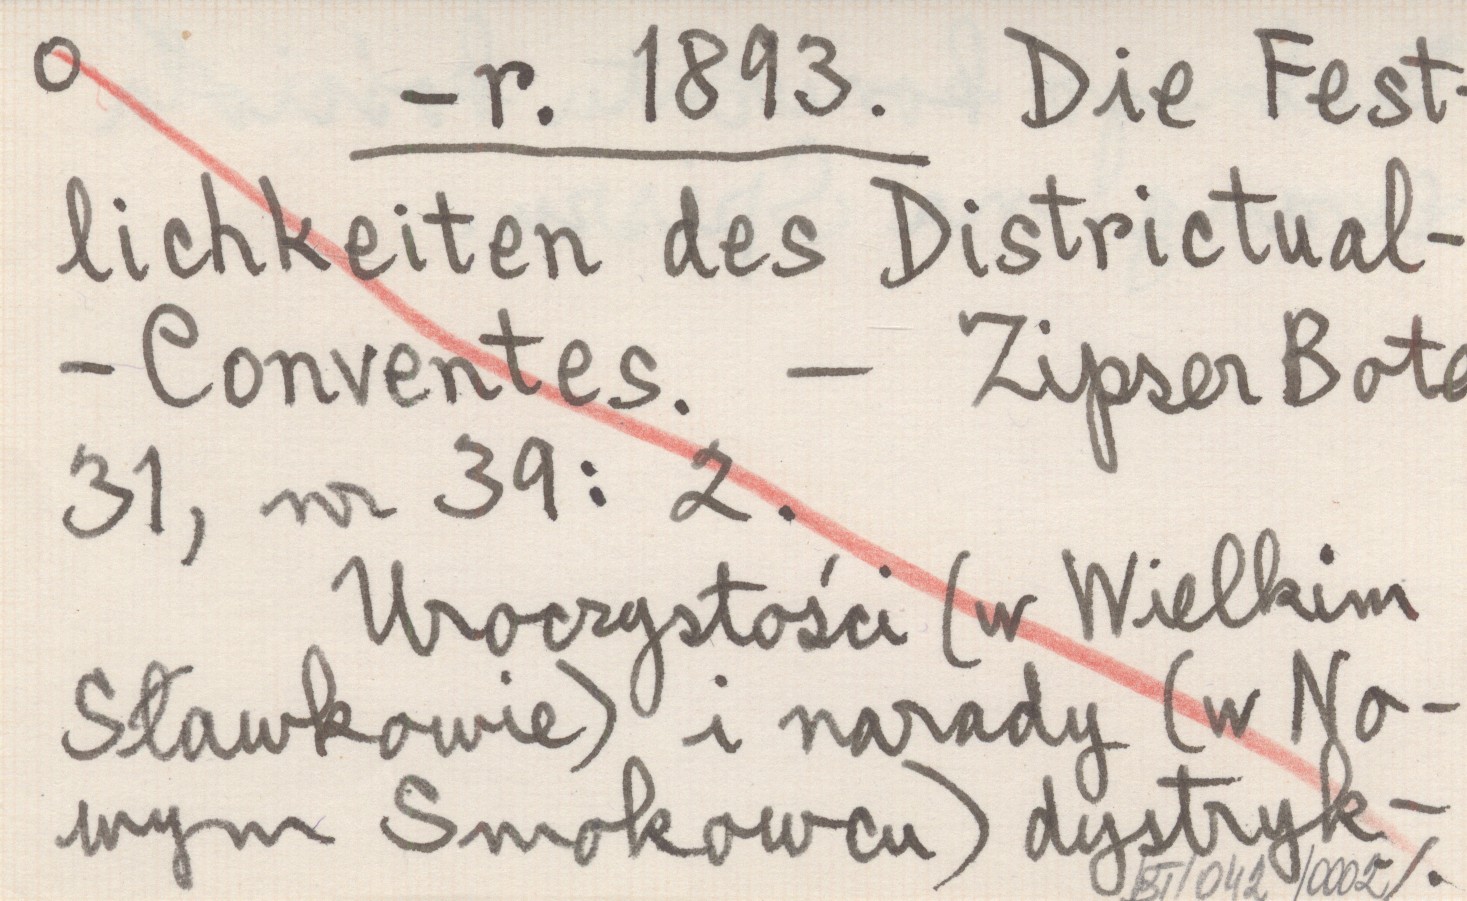 o
-r. 1893. Die Fest-
lichkeiten des Districtual-
-Conventes. — Zipser Bote
31, nr 39: 2.
Uroczystości (w Wielkim
Sławkowie) i narady (w No-
wym Smokowcu) dystryk-
BT/042/0002 ./.